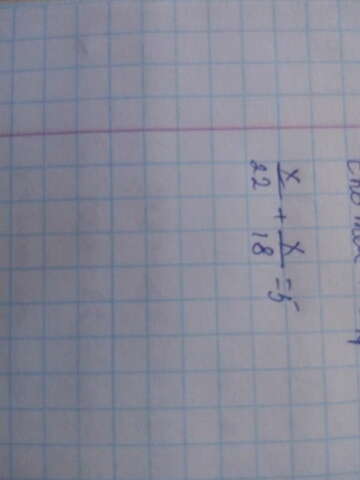 x/22 + x/18 = 5